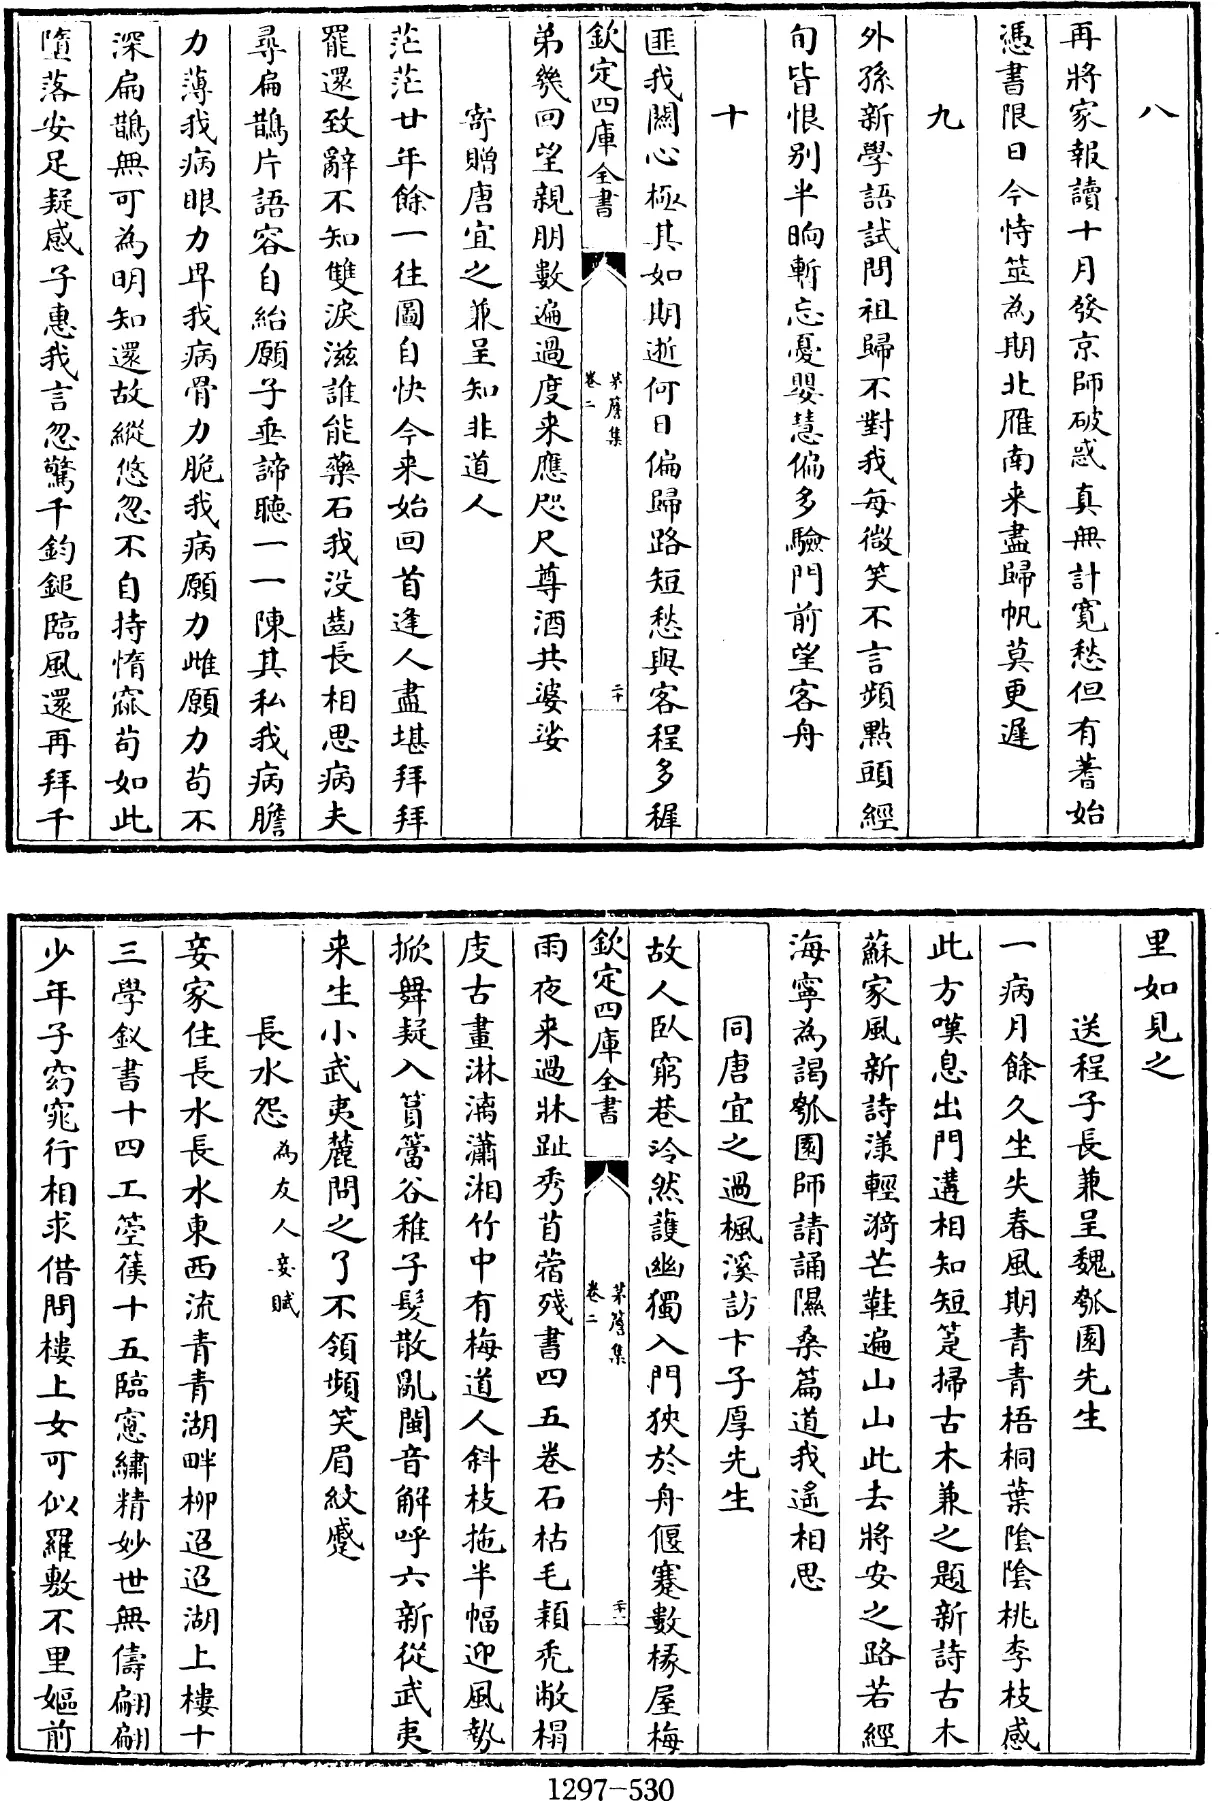 八
再將家報讀十月發京師破惑真無計寬愁但有蓍始
憑書限日今恃筮為期北雁南来盡歸帆莫更遲
九
外孫新學語試問祖歸不對我每微笑不言頻點頭經
旬皆恨别半晌暫忘憂嬰慧偏多驗門前望客舟
十
匪我關心極其如期逝何日偏歸路短愁與客程多穉
欽定四庫全書
茅簷集
卷二
二十
弟幾回望親朋數遍過度来應咫尺尊酒共婆娑
寄贈唐宜之兼呈知非道人
茫茫廿年餘一往圖自快今来始回首逢人盡堪拜拜
罷還致辭不知雙淚滋誰能藥石我没齒長相思病夫
尋扁鵲片語容自紿願子垂諦聴一一陳其私我病膽
力薄我病眼力卑我病骨力脆我病願力雌願力苟不
深扁鵲無可為明知還故縱悠忽不自持惰窳苟如此
墮落安足疑感子惠我言忽驚千鈞鎚臨風還再拜千
里如見之
送程子長兼呈魏瓠園先生
一病月餘久坐失春風期青青梧桐葉陰陰桃李枝感
此方嘆息出門遘相知短箑掃古木兼之題新詩古木
蘇家風新詩漾輕漪芒鞋遍山山此去將安之路若經
海寧為謁瓠園師請誦隰桑篇道我遙相思
同唐宜之過楓溪訪卞子厚先生
故人臥窮巷泠然護幽獨入門狹於舟偃蹇數椽屋梅
欽定四庫全書
茅簷集
卷二
二十一
雨夜来過牀趾秀苜蓿殘書四五卷石枯毛穎禿敝榻
庋古畫淋漓瀟湘竹中有梅道人斜枝拖半幅迎風勢
掀舞疑入篔簹谷稚子髮散亂閩音解呼六新從武夷
来生小武夷麓問之了不領頻笑眉紋蹙
長水怨為友人妾賦
妾家住長水長水東西流青青湖畔柳迢迢湖上樓十
三學釵書十四工箜篌十五臨窻繡精妙世無儔翩翩
少年子窈窕行相求借問樓上女可似羅敷不里嫗前
1297-530